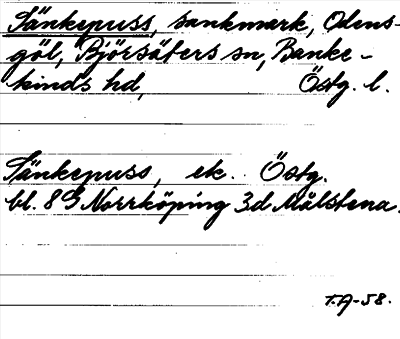 Sänkepuss, sankmark, Odens-
göl, Björsäters sn, Banke-
kinds hd, Östg. l.
Sänkepuss, ek. Östg.
bl. 8G Norrköping 3d Målstena.
T.A-58.